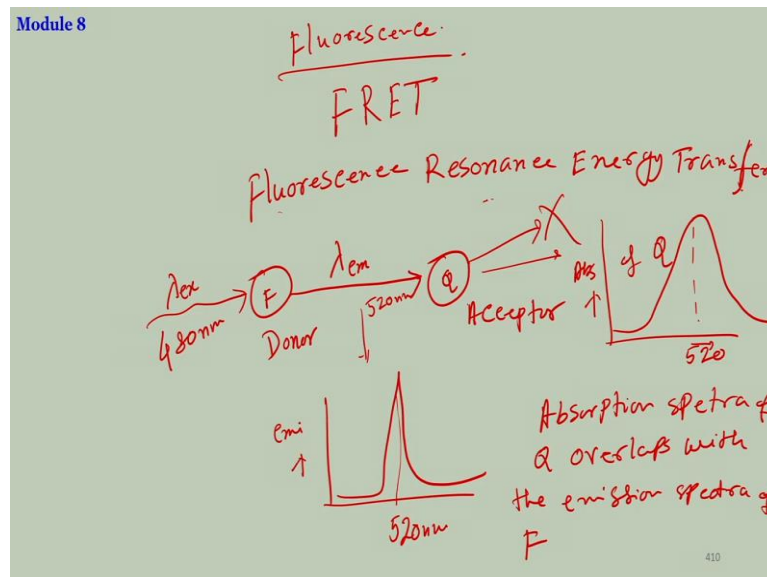 Module 8
Fluorescence.
FRET
Fluorescence Resonance Energy Transfer
λex
480nm
F
Donor
λem
520nm
Q
Acceptor
Abs
of Q
520
emi
520nm
Absorption spetra of
Q overlaps with
the emission spetra of
F
410